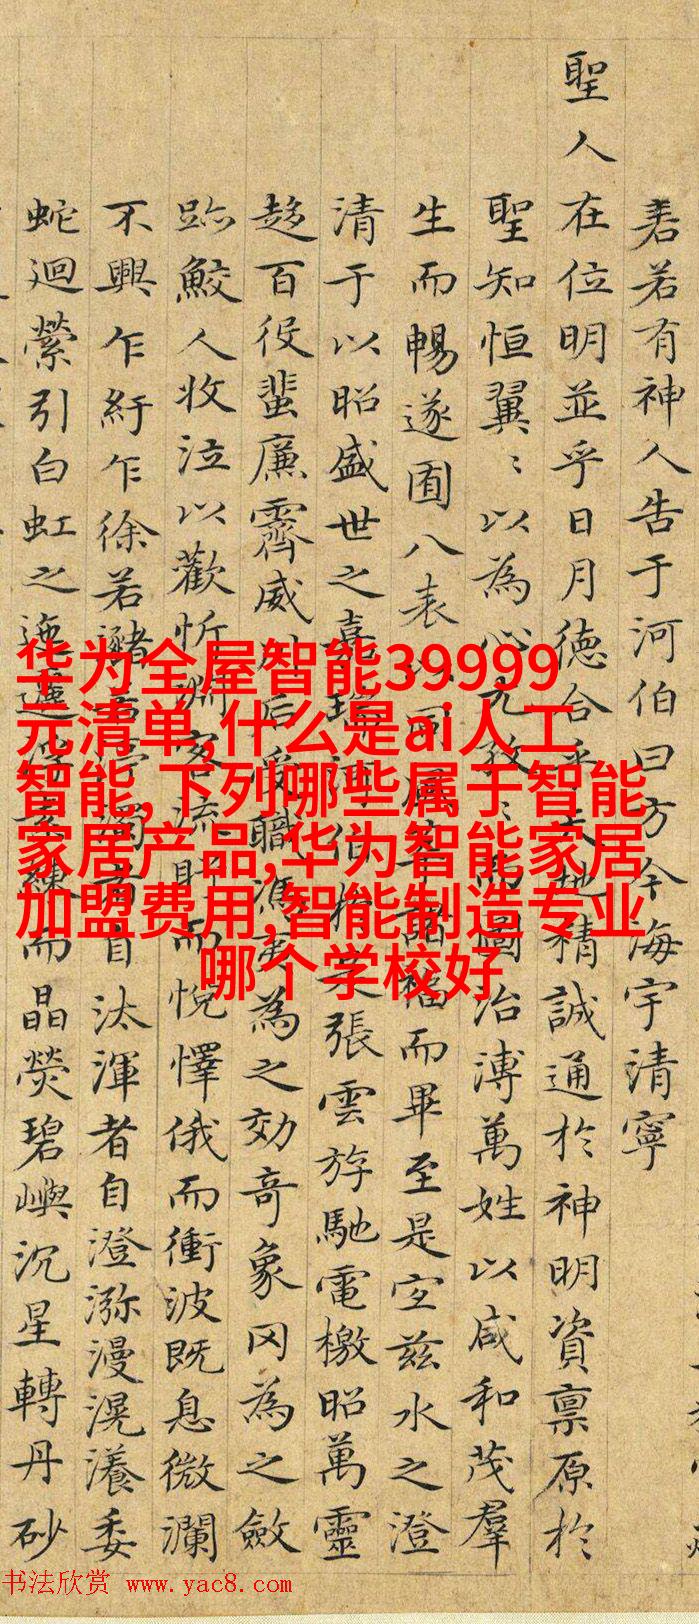 若有神人告于河伯曰方今海宇清寧
聖人在位明並乎日月德合乎天地精誠通於神明資禀原於
聖知恒翼〻以為心尤孜〻而圖治溥萬姓以咸和茂羣
生而暢遂囿八表以同福而畢至是宐兹水之澄
清于以昭盛世之嘉瑞河伯於是張雲斿馳電檄昭萬靈
趍百役蜚廉霽威川后受職馮夷為之効竒象罔為之斂
跡鮫人收泣以歡忻淵客流而悅懌俄而衝波既息微瀾
不興乍紆乍徐若者自汰渾者自澄濔漫滉瀁委
蛇迴縈引白虹之迤邐浮素練而晶熒碧嶼沉星轉丹砂
华为全屋智能39999
元清单,什么是ai人工
智能,下列哪些属于智能
家居产品,华为智能家居
加盟费用,智能制造专业
哪个学校好
书法欣赏 www.yac8.com